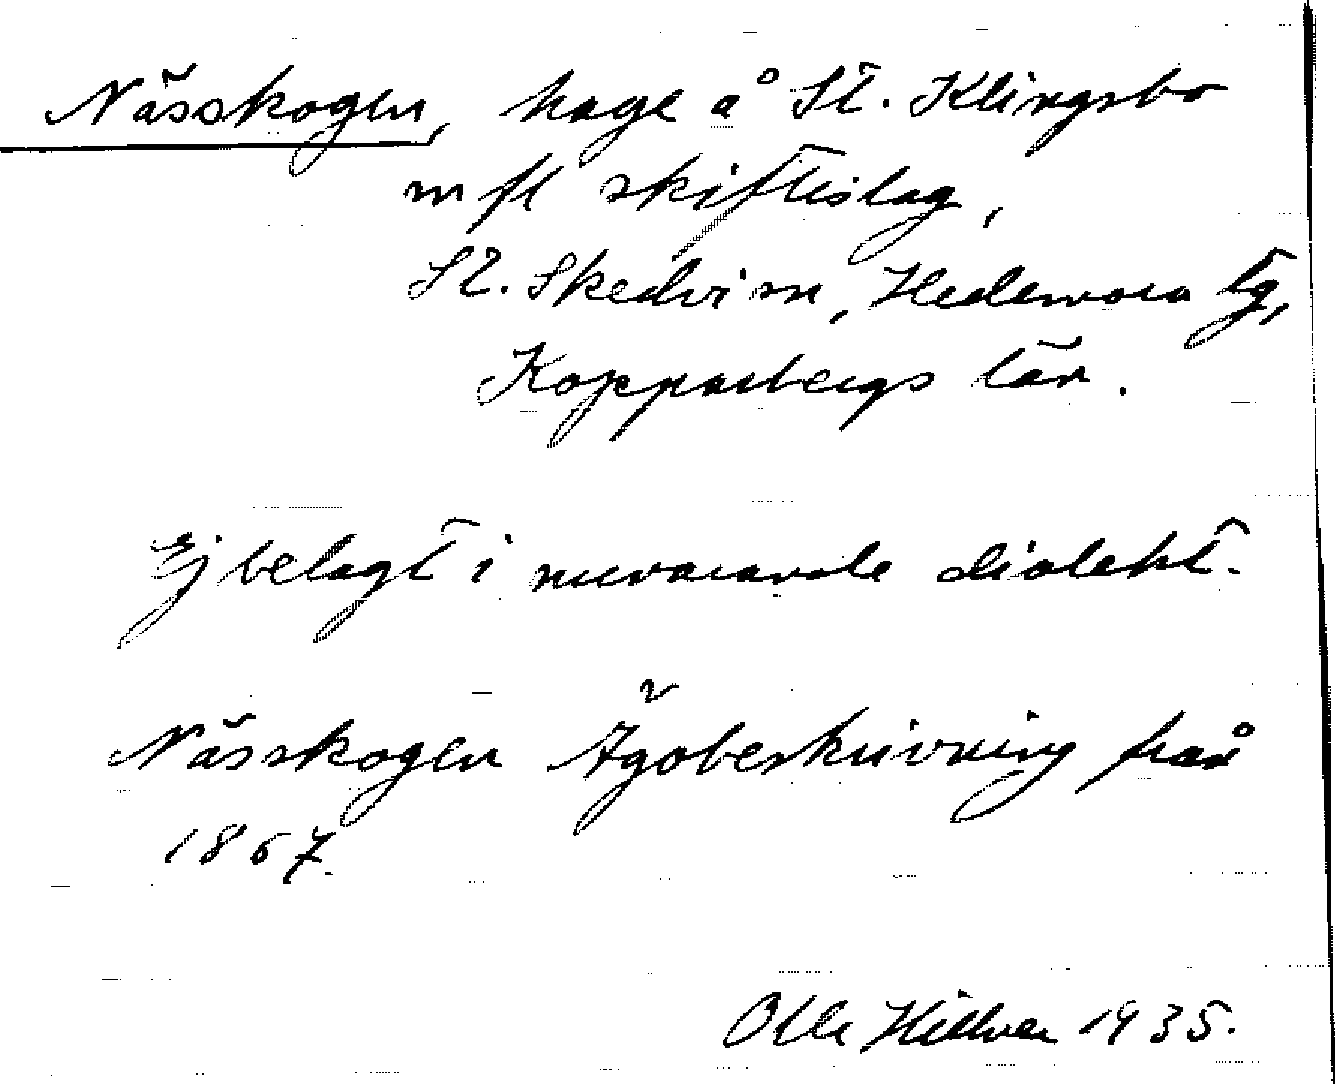 Nässkogen, hage å St. Klingsbo
m fl skifteslag,
St. Skedvi sn, Hedemora tg,
Kopparbergs län.
Ej belagt i nuvarande dialekt.
Nässkogen Ägobeskrivning från
1867.
Olle 1935.